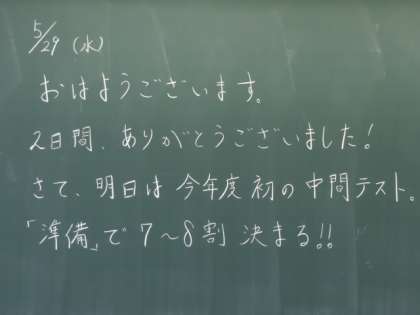 5/29 (水)
おはようございます。
2日間、ありがとうございました!
さて、明日は今年度初の中間テスト。
「準備」で7～8割決まる!!